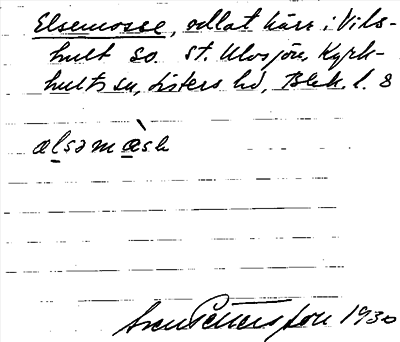 Elsemosse, odlat kärr i Vils-
hult so. St. Ulvsjön, Kyrk-
hults sn, Listers hd, Blek. l. 8
ælsəmòsk
Sven Petersson 1930